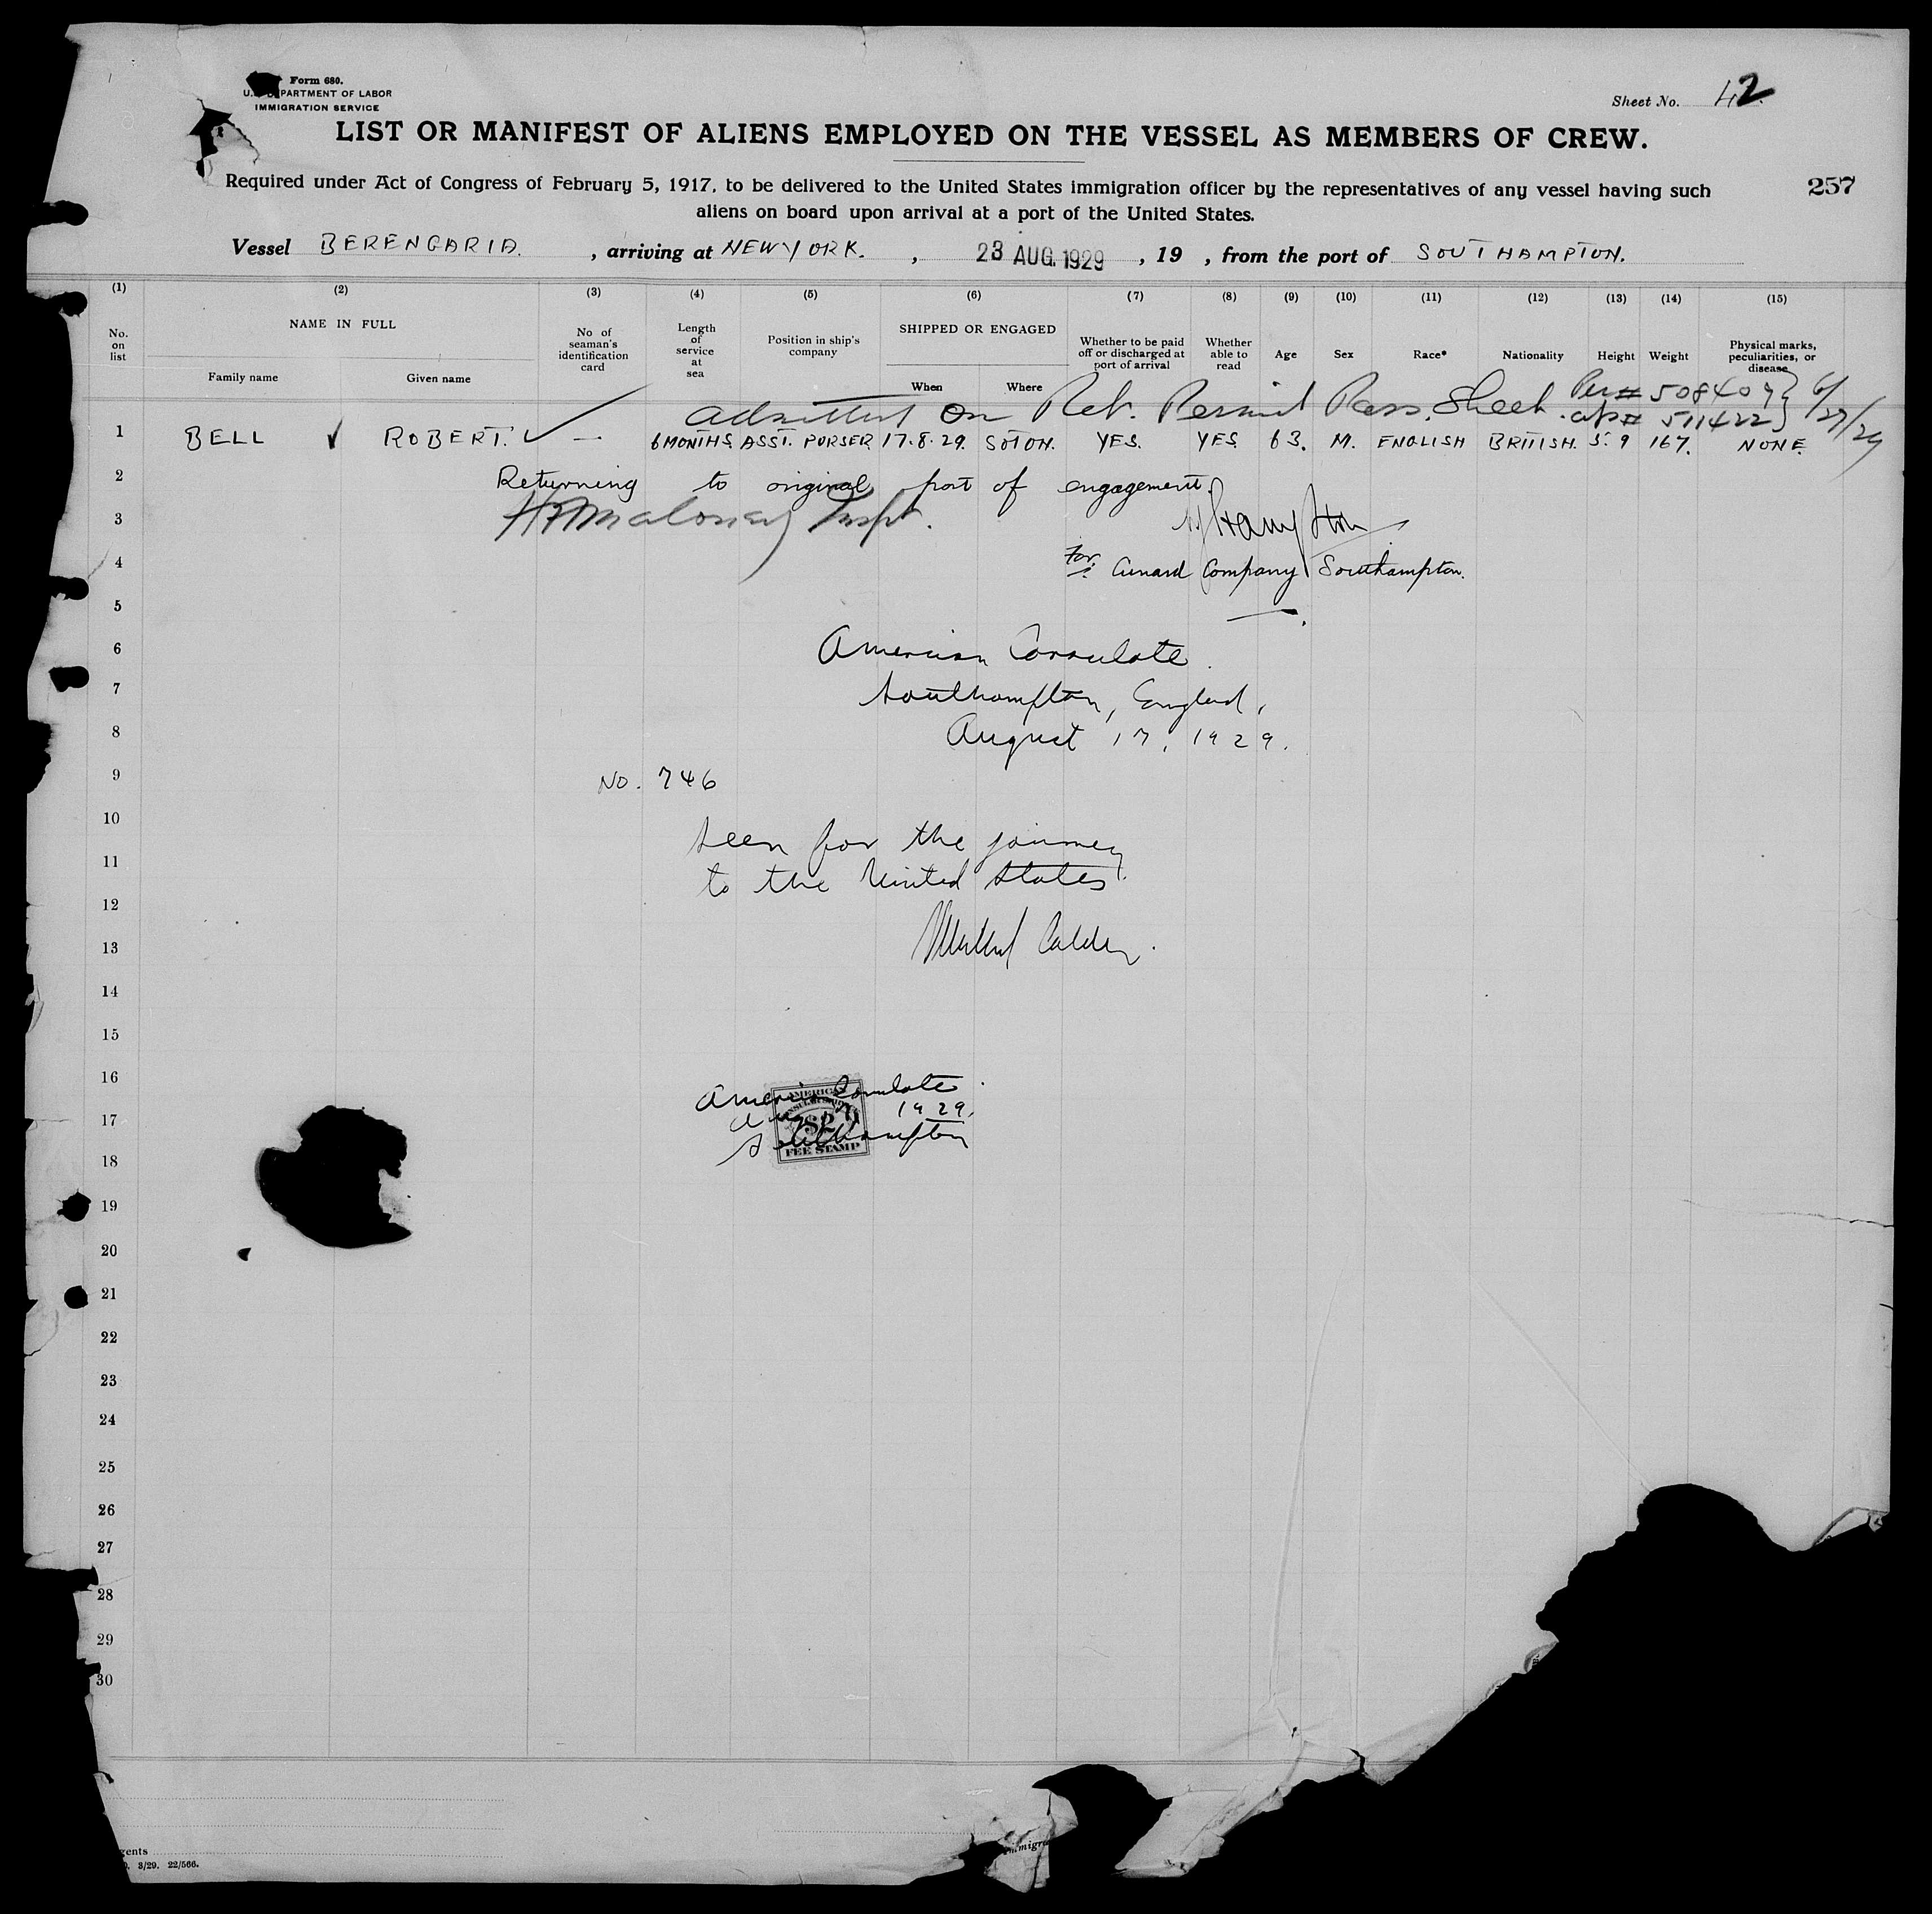 Form 680.
U. S. DEPARTMENT OF LABOR
IMMIGRATION SERVICE
Sheet No. 42
LIST OR MANIFEST OF ALIENS EMPLOYED ON THE VESSEL AS MEMBERS OF CREW.
Required under Act of Congress of February 5, 1917, to be delivered to the United States immigration officer by the representatives of any vessel having such
257
aliens on board upon arrival at a port of the United States.
Vessel BERENGARIA. , arriving at NEW YORK. , 23 AUG. 1929 , 19 , from the port of SOUTHAMPTON.
(1) (2) (3) (4) (5) (6) (7) (8) (9) (10) (11) (12) (13) (14) (15)
No. on list
NAME IN FULL
Family name
Given name
No of seaman's identification card
Length of service at sea
Position in ship's company
SHIPPED OR ENGAGED
When
Where
Whether to be paid off or discharged at port of arrival
Whether able to read
Age
Sex
Race*
Nationality
Height
Weight
Physical marks, peculiarities, or disease
Admitted on Ret. Permit Pass. Sheet. Per# 508407
511422
1 BELL ROBERT. — 6 MONTHS. ASST. PURSER 17.8.29. SOTON. YES. YES. 63. M. ENGLISH BRITISH. 5.9 167. NONE.
2 Returning to original port of engagement.
3 Maloney Inspt.
4 For Cunard Company Southampton.
5
6 American Consulate.
7 Southampton, England,
8 August 17, 1929.
9 No. 746
10 Seen for the journey
11 to the United States.
12
13
14
15
16 American Consulate.
17 1929.
18 Southampton
AMERICAN
$2
FEE STAMP
19
20
21
22
23
24
25
26
27
28
29
30
gents
3/29. 22/566.